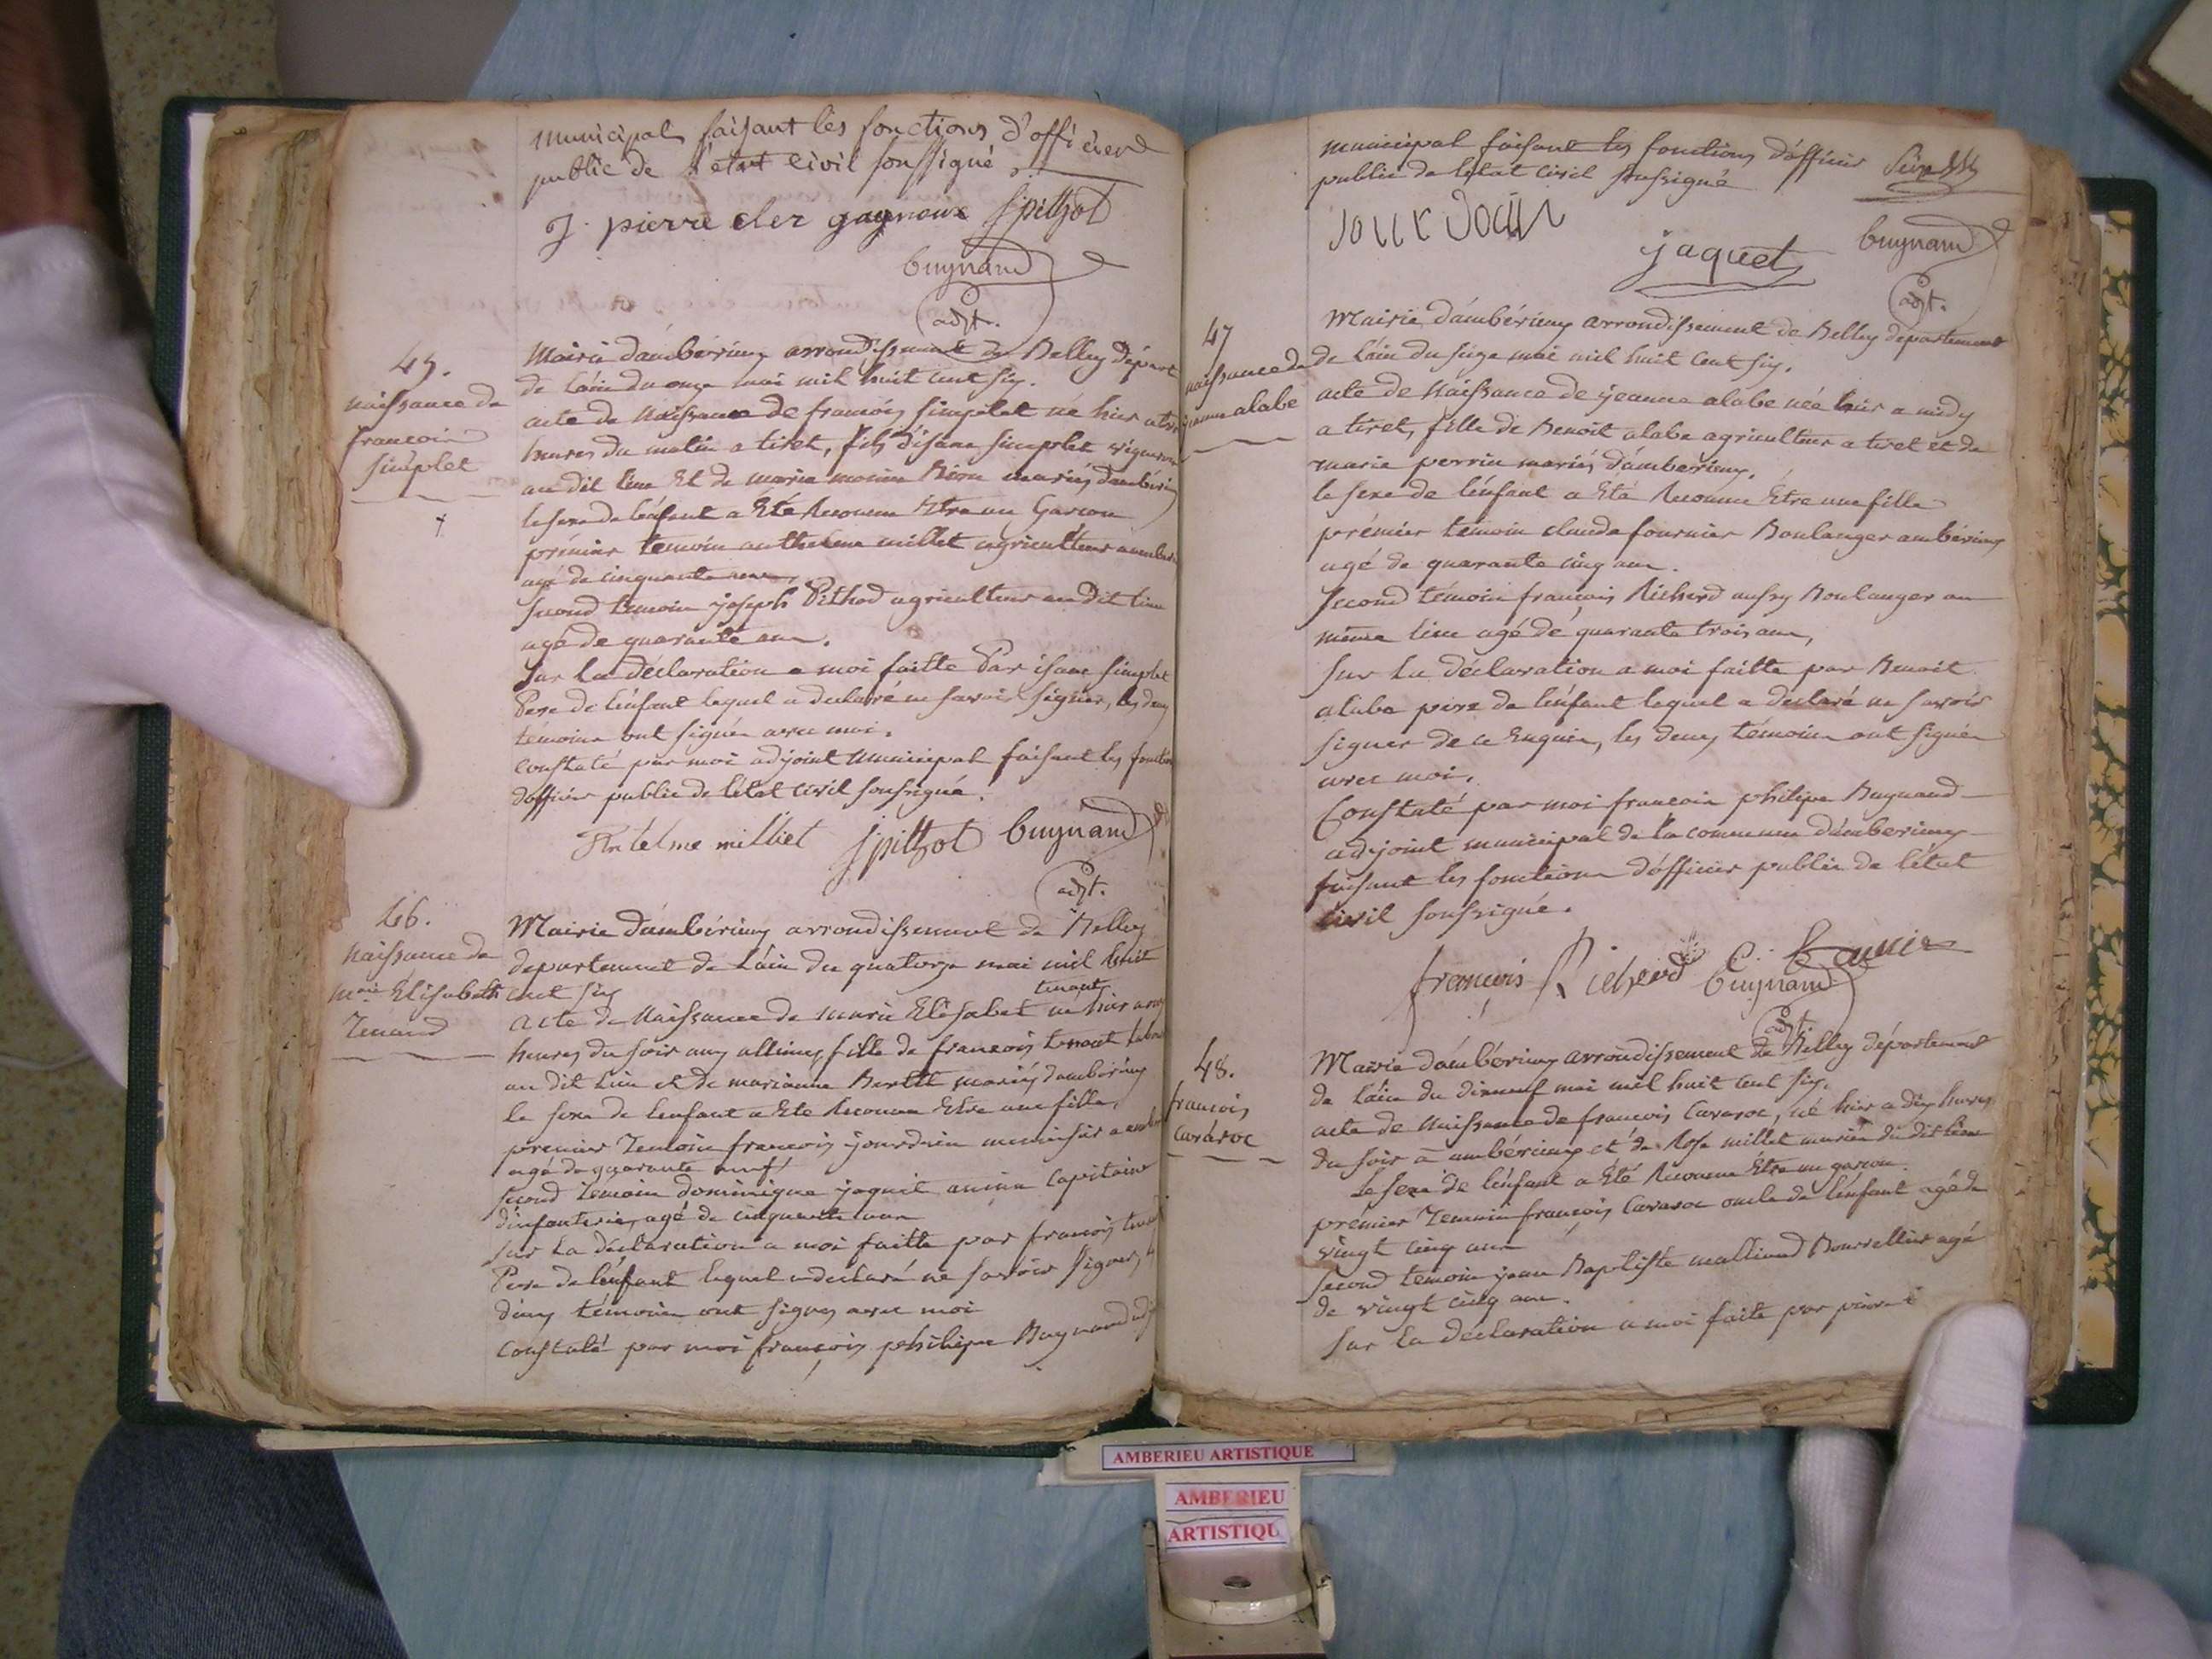 municipal faisant les fonctions d'officier
public de l'état civil soussigné
J. pierre cler gagneux J pithot
buynand
adjt.
45.
naissance de
francois
simplet
Mairie d'ambérieux arrondissement de Belley départ
de l'ain du onze mai mil huit cent six.
acte de Naissance de francois simplet né hier a
heures du matin a tiret, fils d'isaac simplet vigneron
au dit lieu Et de marie mariés d'ambérieux
le sexe de l'enfant a Eté Reconnu Etre un Garcon
prémier témoin anthelme milliet agriculteur
agé de cinquante
second témoin joseph Pithod agriculteur au dit lieu
agé de quarante ans.
Sur la déclaration a moi faitte Par isaac simplet
Pere de l'enfant lequel a declarré ne savoir signer, les deux
témoins ont signés avec moi.
constaté par moi adjoint municipal faisant les fonctions
d'officier public de l'état civil soussigné.
Antelme milliet J pithot buynand
adjt.
46.
naissance de
mie Elisabeth
Tenand
Mairie d'ambérieux arrondissement de Belley
departement de l'ain du quatorze mai mil huit
cent six
tenant
acte de Naissance de marie Elisabet né hier a
heures du soir aux allimes, fille de francois tenant
au dit lieu et de marianne mariés d'ambérieux
le sexe de l'enfant a Eté Reconnu Etre une fille
premier Temoin francois jourdain menuisier a
agé de quarante neuf
second témoin dominique jaquet ancien Capitaine
d'infanterie, agé de cinquante
sur la déclaration a moi faitte par francois
Pere de l'enfant lequel a declaré ne savoir signer,
deux témoins ont signes avec moi
constaté par moi françois philipe Buynand adj
municipal faisant les fonctions d'officier
public de l'état civil soussigné
jourdain
jaquet
buynand
adjt.
47
naissance de
jeanne alabe
Mairie d'ambérieux arrondissement de Belley departement
de l'ain du seize mai mil huit cent six.
acte de Naissance de jeanne alabe née hier a midy
a tiret, fille de Benoit alabe agriculteur a tiret et de
marie perrin mariés d'amberieux.
le sexe de l'enfant a Eté Reconnu Etre une fille
prémier témoin claude fournier Boulanger ambérieux
agé de quarante cinq ans.
second témoin françois Richerd aussy Boulanger au
même lieu agé de quarante trois ans,
sur la déclaration a moi faitte par Benoit
alabe pere de l'enfant lequel a declaré ne savoir
signer de ce Enquis, les deux témoins ont signés
avec moi.
Constaté par moi francois philipe Buynand
adjoint municipal de la commune d'amberieux
faisant les fonctions d'officier public de l'état
civil soussigné.
françois Richerd
buynand
adjt.
48.
francois
Cavaroc
Mairie d'ambérieux arrondissement de Belley département
de l'ain du dixneuf mai mil huit cent six.
acte de Naissance de francois Cavaroc, né hier a dix heures
du soir a ambérieux et de Rose millet mariés du dit lieu
Le sexe de l'enfant a Eté Reconnu Etre un garcon.
prémier Temoin françois Cavaroc oncle de l'enfant agé de
vingt cinq ans
second temoin jean Baptiste malliand Bourrellier agé
de vingt cinq ans.
sur la déclaration a moi faite par pierre
AMBERIEU ARTISTIQUE
AMBERIEU
ARTISTIQU